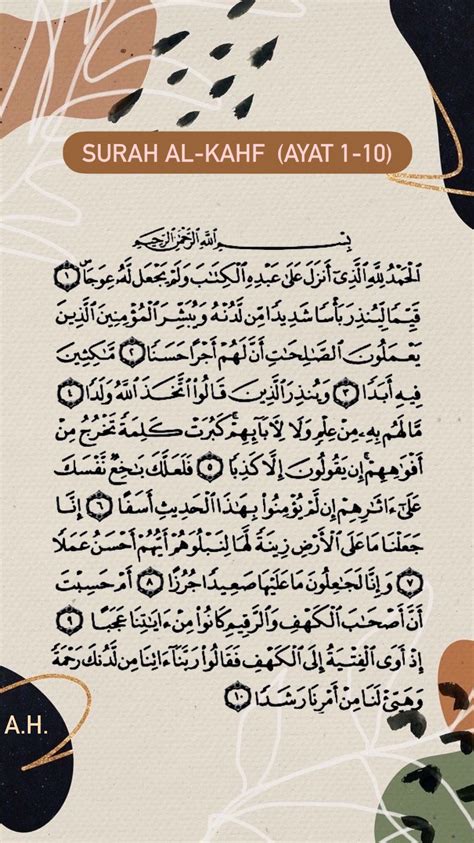 SURAH AL-KAHF (AYAT 1-10)
بِسْمِ ٱللَّهِ ٱلرَّحْمَٰنِ ٱلرَّحِيمِ
ٱلْحَمْدُ لِلَّهِ ٱلَّذِىٓ أَنزَلَ عَلَىٰ عَبْدِهِ ٱلْكِتَٰبَ وَلَمْ يَجْعَل لَّهُۥ عِوَجَاۜ ١
قَيِّمًا لِّيُنذِرَ بَأْسًا شَدِيدًا مِّن لَّدُنْهُ وَيُبَشِّرَ ٱلْمُؤْمِنِينَ ٱلَّذِينَ
يَعْمَلُونَ ٱلصَّٰلِحَٰتِ أَنَّ لَهُمْ أَجْرًا حَسَنًا ٢ مَّٰكِثِينَ
فِيهِ أَبَدًا ٣ وَيُنذِرَ ٱلَّذِينَ قَالُوا۟ ٱتَّخَذَ ٱللَّهُ وَلَدًا ٤
مَّا لَهُم بِهِۦ مِنْ عِلْمٍ وَلَا لِـَٔابَآئِهِمْ ۚ كَبُرَتْ كَلِمَةً تَخْرُجُ مِنْ
أَفْوَٰهِهِمْ ۚ إِن يَقُولُونَ إِلَّا كَذِبًا ٥ فَلَعَلَّكَ بَٰخِعٌ نَّفْسَكَ
عَلَىٰٓ ءَاثَٰرِهِمْ إِن لَّمْ يُؤْمِنُوا۟ بِهَٰذَا ٱلْحَدِيثِ أَسَفًا ٦ إِنَّا
جَعَلْنَا مَا عَلَى ٱلْأَرْضِ زِينَةً لَّهَا لِنَبْلُوَهُمْ أَيُّهُمْ أَحْسَنُ عَمَلًا
٧ وَإِنَّا لَجَٰعِلُونَ مَا عَلَيْهَا صَعِيدًا جُرُزًا ٨ أَمْ حَسِبْتَ
أَنَّ أَصْحَٰبَ ٱلْكَهْفِ وَٱلرَّقِيمِ كَانُوا۟ مِنْ ءَايَٰتِنَا عَجَبًا ٩
إِذْ أَوَى ٱلْفِتْيَةُ إِلَى ٱلْكَهْفِ فَقَالُوا۟ رَبَّنَآ ءَاتِنَا مِن لَّدُنكَ رَحْمَةً
وَهَيِّئْ لَنَا مِنْ أَمْرِنَا رَشَدًا ١٠
A.H.